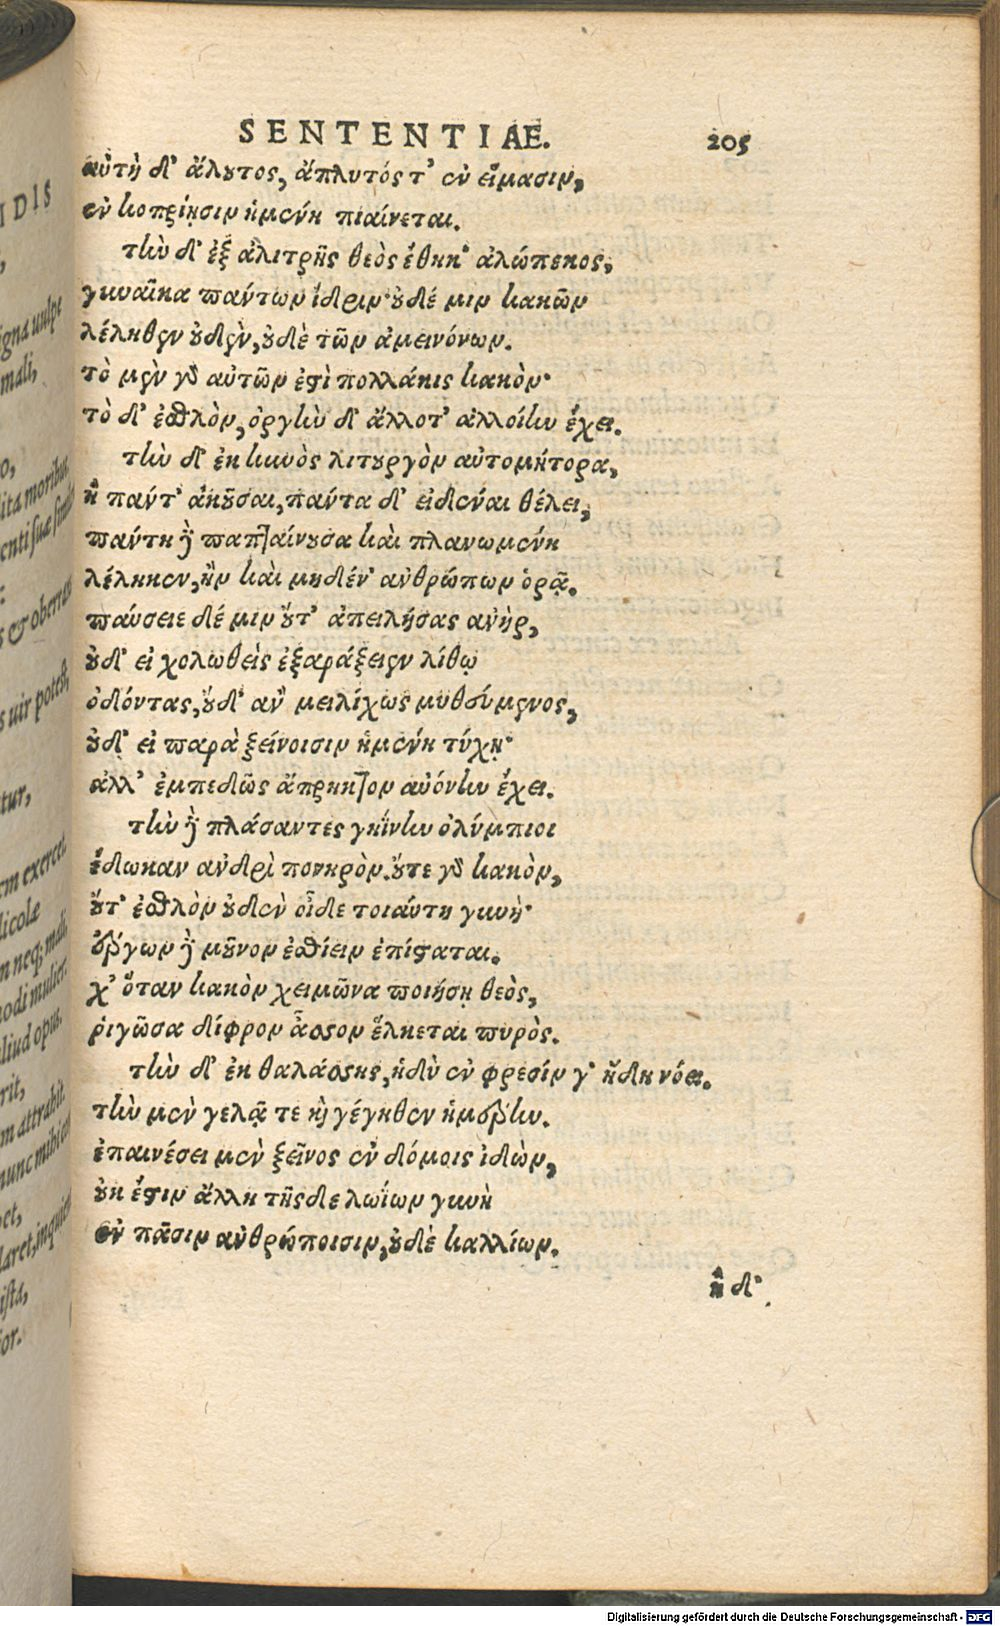 SENTENTIAE. 205
αὐτὴ δ' ἄλουτος, ἄπλυτός τ' ἐν εἵμασιν,
ἐν κοπρίῃσιν ἡμένη πιαίνεται.
τὴν δ' ἐξ ἀλιτρῆς θεὸς ἔθηκ' ἀλώπεκος,
γυναῖκα πάντων ἴδριν· οὐδέ μιν κακῶν
λέληθεν οὐδὲν, οὐδὲ τῶν ἀμεινόνων.
τὸ μὲν γὰρ αὐτῶν ἐστὶ πολλάκις κακὸν·
τὸ δ' ἐσθλὸν, ὀργὴν δ' ἄλλοτ' ἀλλοίην ἔχει.
τὴν δ' ἐκ κυνὸς λιτουργὸν αὐτομήτορα,
ἣ παντ' ἀκοῦσαι, πάντα δ' εἰδέναι θέλει,
πάντη δὲ παπταίνουσα καὶ πλανωμένη
λέληκεν, ἢν καὶ μηδέν' ἀνθρώπων ὁρᾷ.
παύσειε δέ μιν οὔτ' ἀπειλήσας ἀνὴρ,
οὐδ' εἰ χολωθεὶς ἐξαράξειεν λίθῳ
ὀδόντας, οὔδ' ἂν μειλίχως μυθεύμενος,
οὐδ' εἰ παρὰ ξείνοισιν ἡμένη τύχῃ·
ἀλλ' ἐμπεδῶς ἄπρηκτον αὑόνην ἔχει.
τὴν δὲ πλάσαντες γηΐνην ὀλύμπιοι
ἔδωκαν ἀνδρὶ πονηρὸν. οὔτε γὰρ κακὸν,
οὔτ' ἐσθλὸν οὐδὲν οἶδε τοιαύτη γυνὴ·
ἔργων δὲ μοῦνον ἐσθίειν ἐπίσταται.
χ' ὅταν κακὸν χειμῶνα ποιήσῃ θεὸς,
ῥιγῶσα δίφρον ἆσσον ἕλκεται πυρὸς.
τὴν δ' ἐκ θαλάσσης, ἡδὺ ἐν φρεσίν γ' ἤδη νόει.
τὴν μὲν γελᾷ τε καὶ γέγηθεν ἡμέρην.
ἐπαινέσει μὲν ξεῖνος ἐν δόμοις ἰδὼν,
οὐκ ἔστιν ἄλλη τῆσδε λωΐων γυνὴ
ἐν πᾶσιν ἀνθρώποισιν, οὐδὲ καλλίων.
ἣ δ'
Digitalisierung gefördert durch die Deutsche Forschungsgemeinschaft - DFG